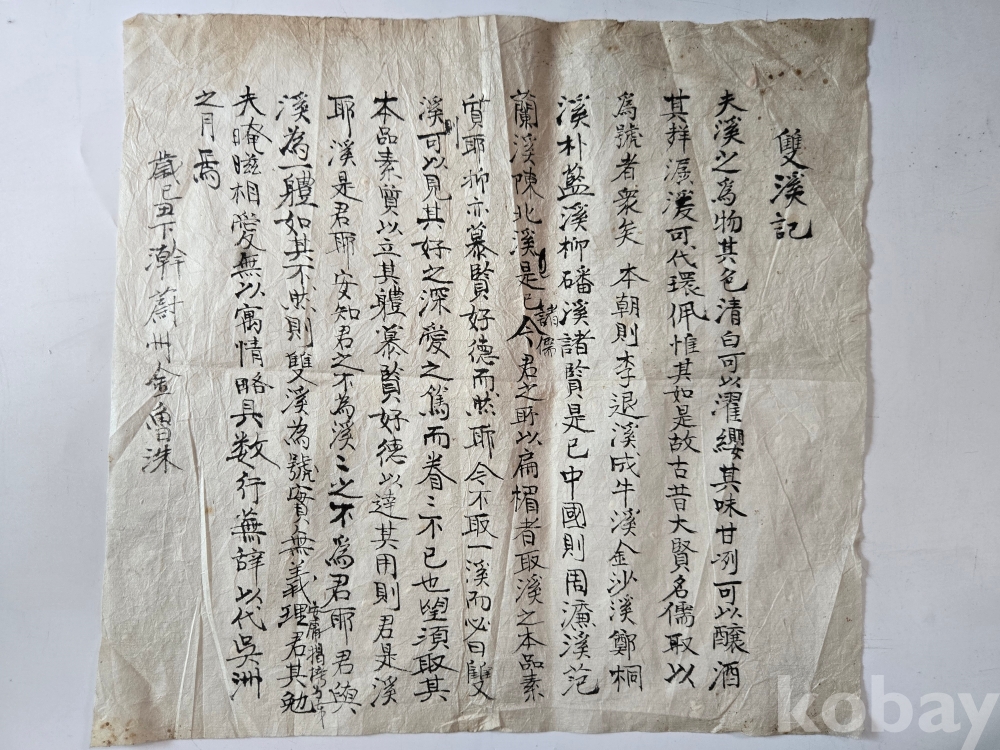 雙溪記
夫溪之爲物其色清白可以濯纓其味甘冽可以釀酒
其群潺湲可代環佩惟其如是故古昔大賢名儒取以
爲號者衆矣 本朝則李退溪成牛溪金沙溪鄭桐
溪朴藍溪柳磻溪諸賢是已中國則周濂溪范
蘭溪陳北溪諸儒是已今君之所以扁楣者取溪之本品素
質耶抑亦慕賢好德而然耶今不取一溪而必曰雙
溪可以見其好之深愛之篤而眷〻不已也望須取其
本品素質以立其體慕賢好德以達其用則君是溪
耶溪是君耶安知君之不為溪〻之不爲君耶君與
溪為一體如其不然則雙溪為號實無義理君其勉
夫晻曖相愛無以寓情略具数行蕪辞以代吳洲
之月焉
歲己丑下澣蔚州金魯洙
kobay